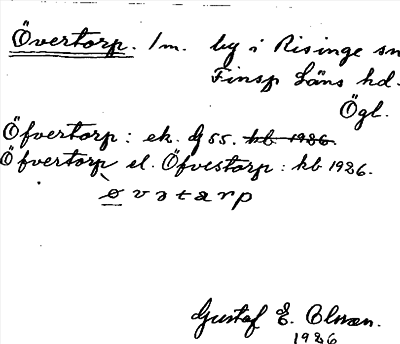 Övertorp. 1m. by i Risinge sn
Finsp Läns hd.
Ögl.
Öfvertorp: ek. G 55. kb 1926.
Öfvertorp el. Öfvestorp: kb 1926.
øvətarp
Gustaf E. Olsson.
1926